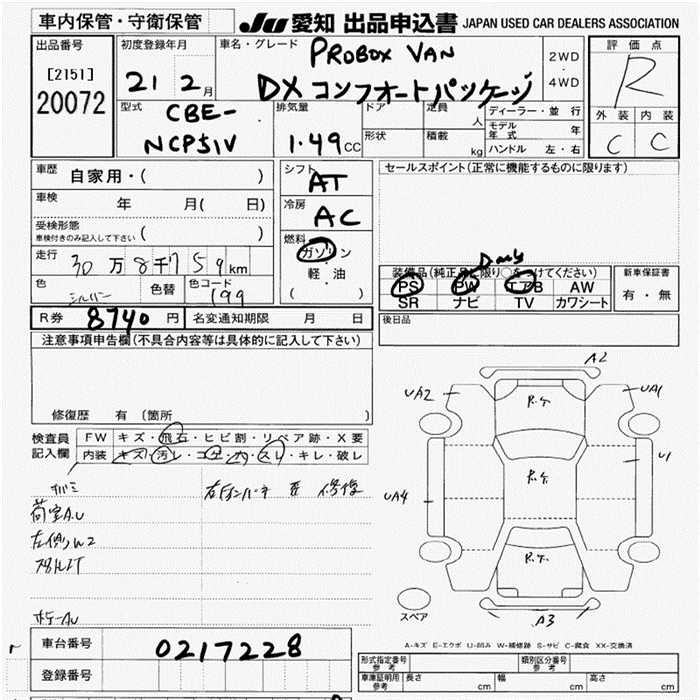 車内保管・守衛保管
JU 愛知 出品申込書 JAPAN USED CAR DEALERS ASSOCIATION
出品番号
[2151]
20072
初度登録年月
21 2月
車名・グレード
PROBOX VAN
DX コンフォートパッケージ
2WD
4WD
評価点
R
外装 内装
C C
型式
CBE-
NCP51V
排気量
1.49CC
ドア
形状
定員 人
積載 kg
ディーラー・並行
モデル年式 年
ハンドル 左・右
車歴 自家用・( )
車検 年 月( 日)
受検形態
車検付きのみ記入して下さい ( )
走行 30万8千759km
色 シルバー 色替 色コード 199
シフト
AT
冷房
AC
燃料
ガソリン
軽・油
( )
セールスポイント(正常に機能するものに限ります)
装備品(純正品に限り○をつけてください)
PS PW エアB AW
SR ナビ TV カワシート
新車保証書
有・無
R券 8740円 名変通知期限 月 日
後日品
注意事項申告欄(不具合内容等は具体的に記入して下さい)
修復歴 有 〔箇所 〕
検査員
記入欄
FW キズ・飛石・ヒビ割・リペア跡・X要
内装 キズ・汚レ・コゲ・穴・スレ・キレ・破レ
荷室A.U
右Fインパネ 要 修復
A2
UA2
UA1
R.ケ.
R.ケ.
R.ケ.
U1
UA4
A3
スペア
A-キズ E-エクボ U-凹み W-補修跡 S-サビ C-腐食 XX-交換済
車台番号 0217228
登録番号
形式指定番号
参考
類別区分番号
参考
車庫証明用
参考
長さ cm 幅 cm 高さ cm